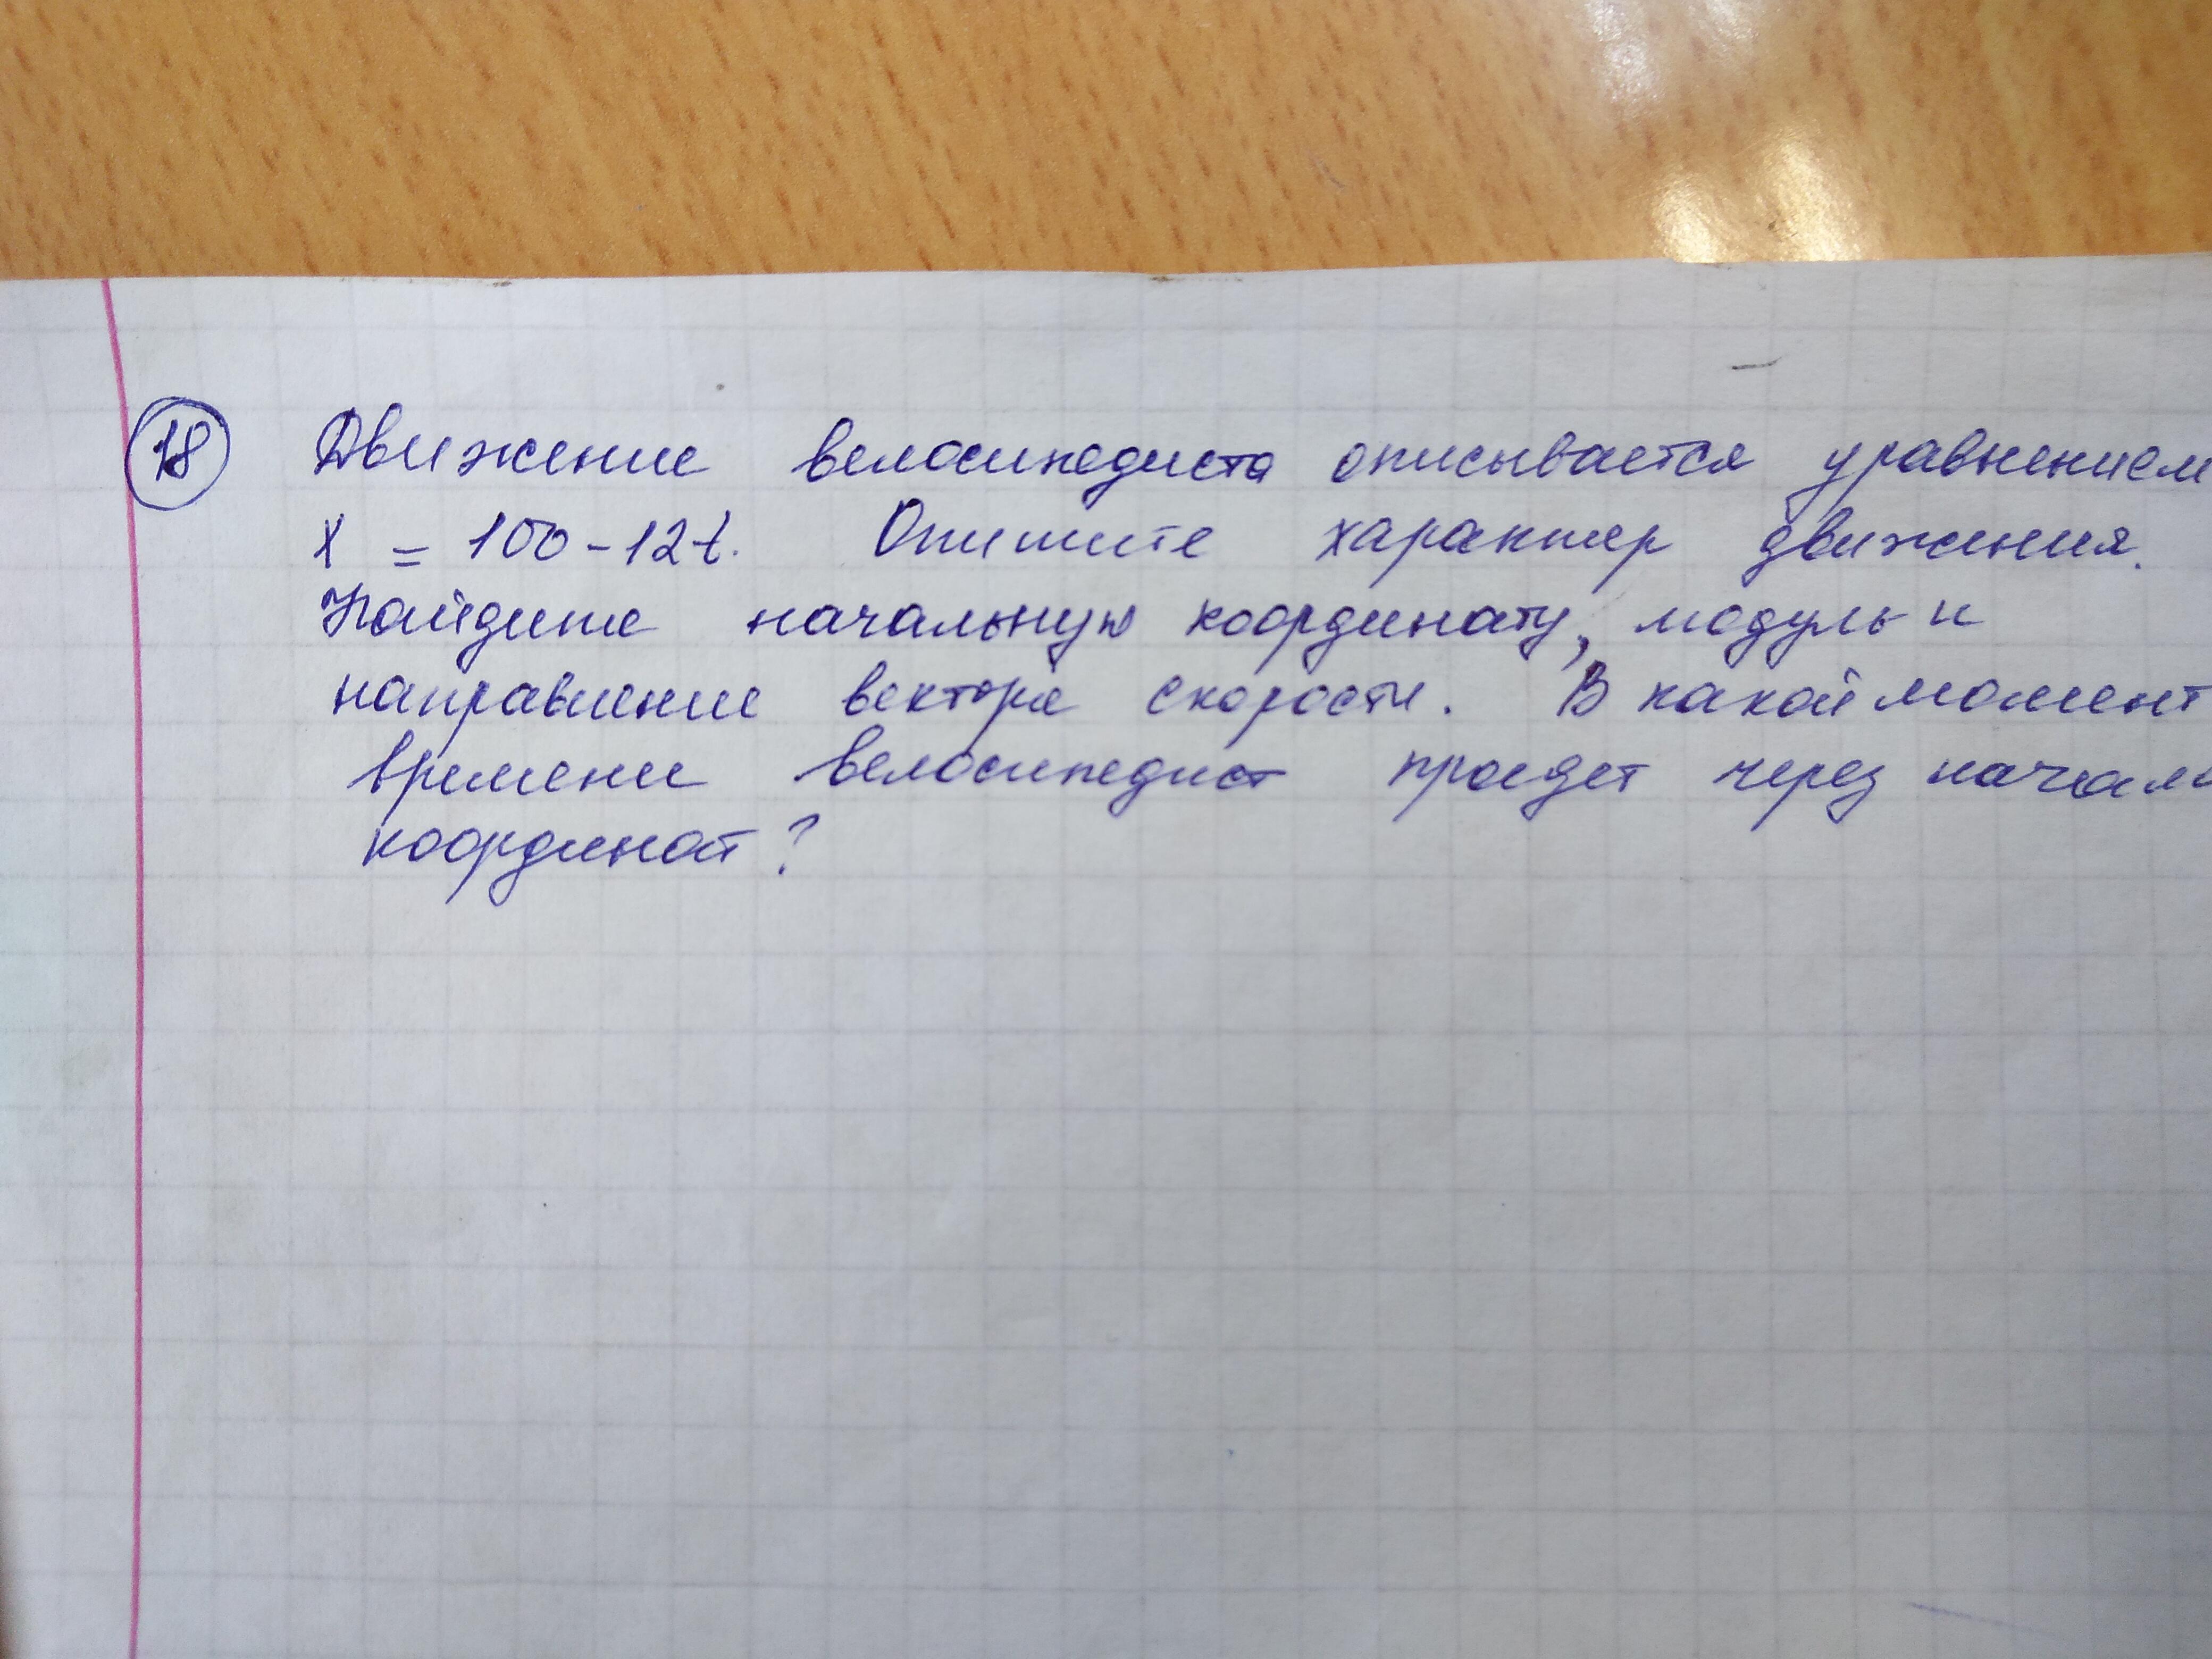 18 Движение велосипедиста описывается уравнением
x = 100 - 12t. Опишите характер движения.
Найдите начальную координату, модуль и
направление вектора скорости. В какой момент
времени велосипедист проедет через начало
координат?